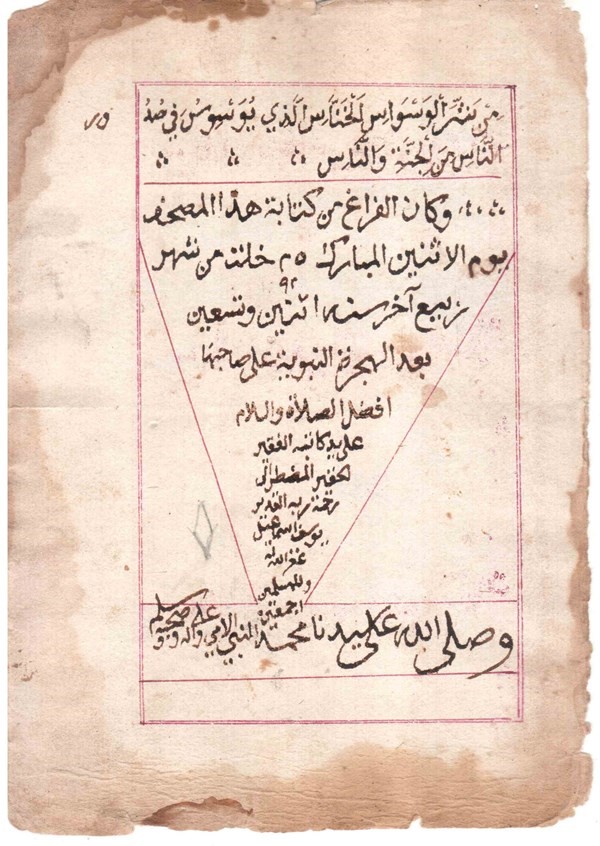 مِن شَرِّ الْوَسْوَاسِ الْخَنَّاسِ الَّذِي يُوَسْوِسُ فِي صُدُ
النَّاسِ مِنَ الْجِنَّةِ وَالنَّاسِ
وكان الفراغ من كتابة هذا المصحف
يوم الاثنين المبارك ٢٥ خلت من شهر
ربيع آخر سنه اثنين وتسعين
٩٢
بعد الهجرة النبوية على صاحبها
افضل الصلاة والسلام
على يد كاتبه الفقير
الحقير المضطر الى
رحمة ربه القدير
يوسف اسماعيل
غفر الله له
وللمسلمين
اجمعين
وصلى الله على سيدنا محمد النبي الامي واله وصحبه وسلم